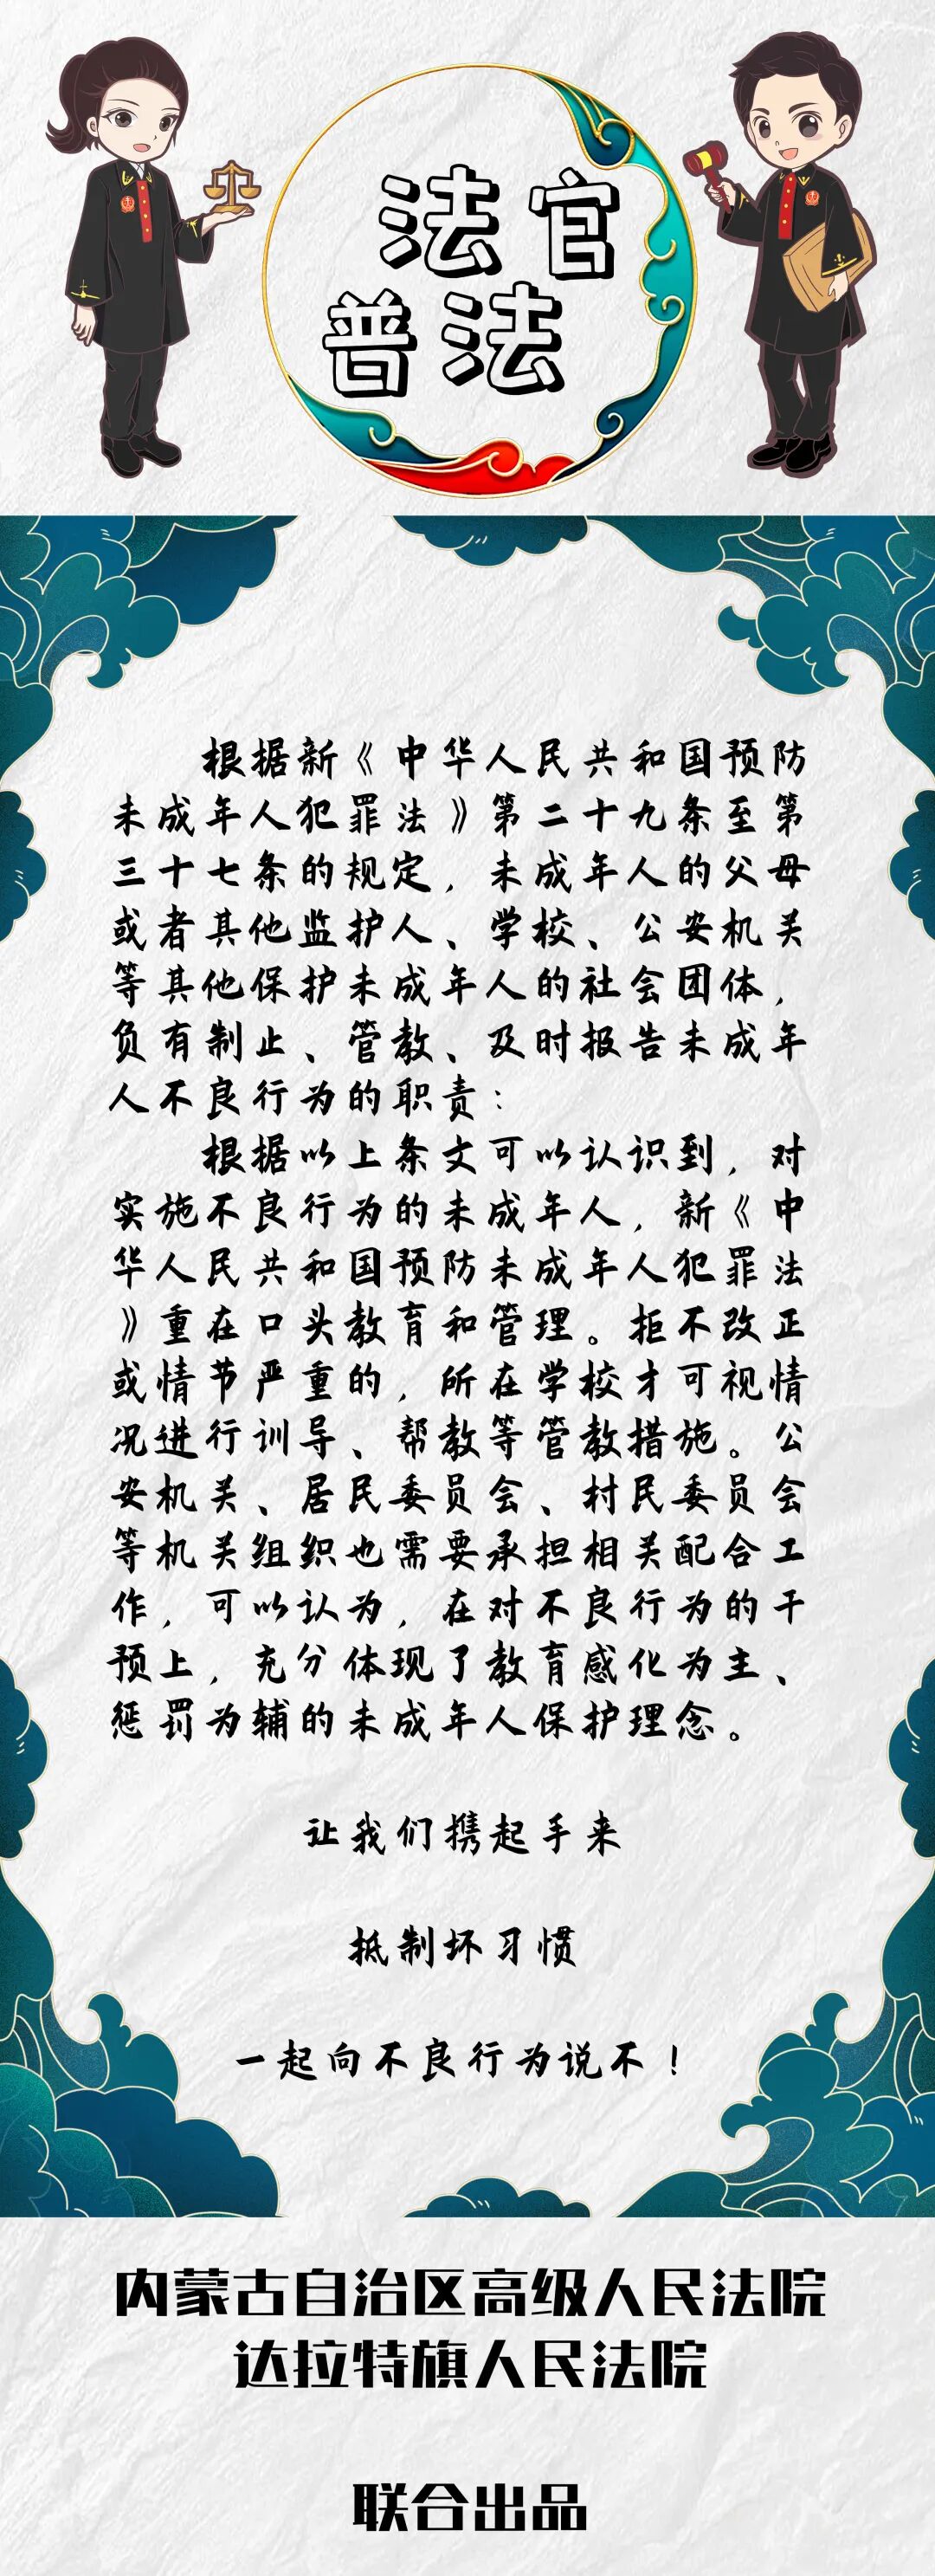 法官
普法
根据新《中华人民共和国预防
未成年人犯罪法》第二十九条至第
三十七条的规定，未成年人的父母
或者其他监护人、学校、公安机关
等其他保护未成年人的社会团体，
负有制止、管教、及时报告未成年
人不良行为的职责：
根据以上条文可以认识到，对
实施不良行为的未成年人，新《中
华人民共和国预防未成年人犯罪法
》重在口头教育和管理。拒不改正
或情节严重的，所在学校才可视情
况进行训导、帮教等管教措施。公
安机关、居民委员会、村民委员会
等机关组织也需要承担相关配合工
作，可以认为，在对不良行为的干
预上，充分体现了教育感化为主、
惩罚为辅的未成年人保护理念。
让我们携起手来
抵制坏习惯
一起向不良行为说不！
内蒙古自治区高级人民法院
达拉特旗人民法院
联合出品